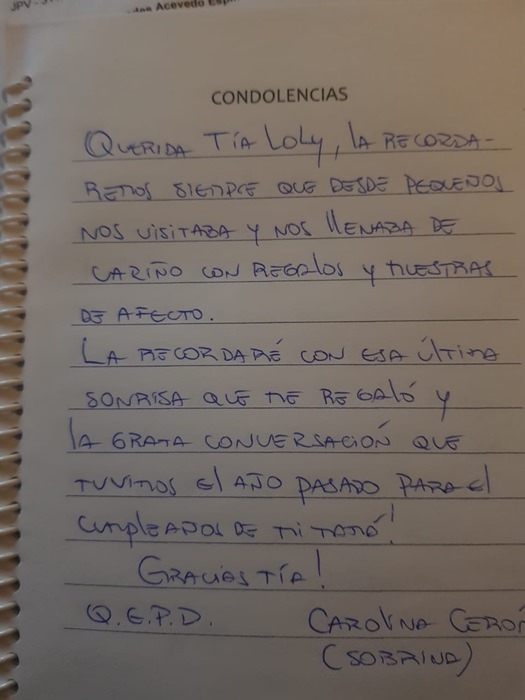 JPV - 3
Acevedo Esp
CONDOLENCIAS
QUERIDA TÍA LOLY, LA RECORDA-
REMOS SIEMPRE QUE DESDE PEQUEÑOS
NOS VISITABA Y NOS LLENABA DE
CARIÑO CON REGALOS Y MUESTRAS
DE AFECTO.
LA RECORDARÉ CON ESA ÚLTIMA
SONRISA QUE ME REGALÓ Y
LA GRATA CONVERSACIÓN QUE
TUVIMOS EL AÑO PASADO PARA EL
CUMPLEAÑOS DE MI MAMÁ!
GRACIAS TÍA!
Q.E.P.D. CAROLINA CERÓ
(SOBRINA)